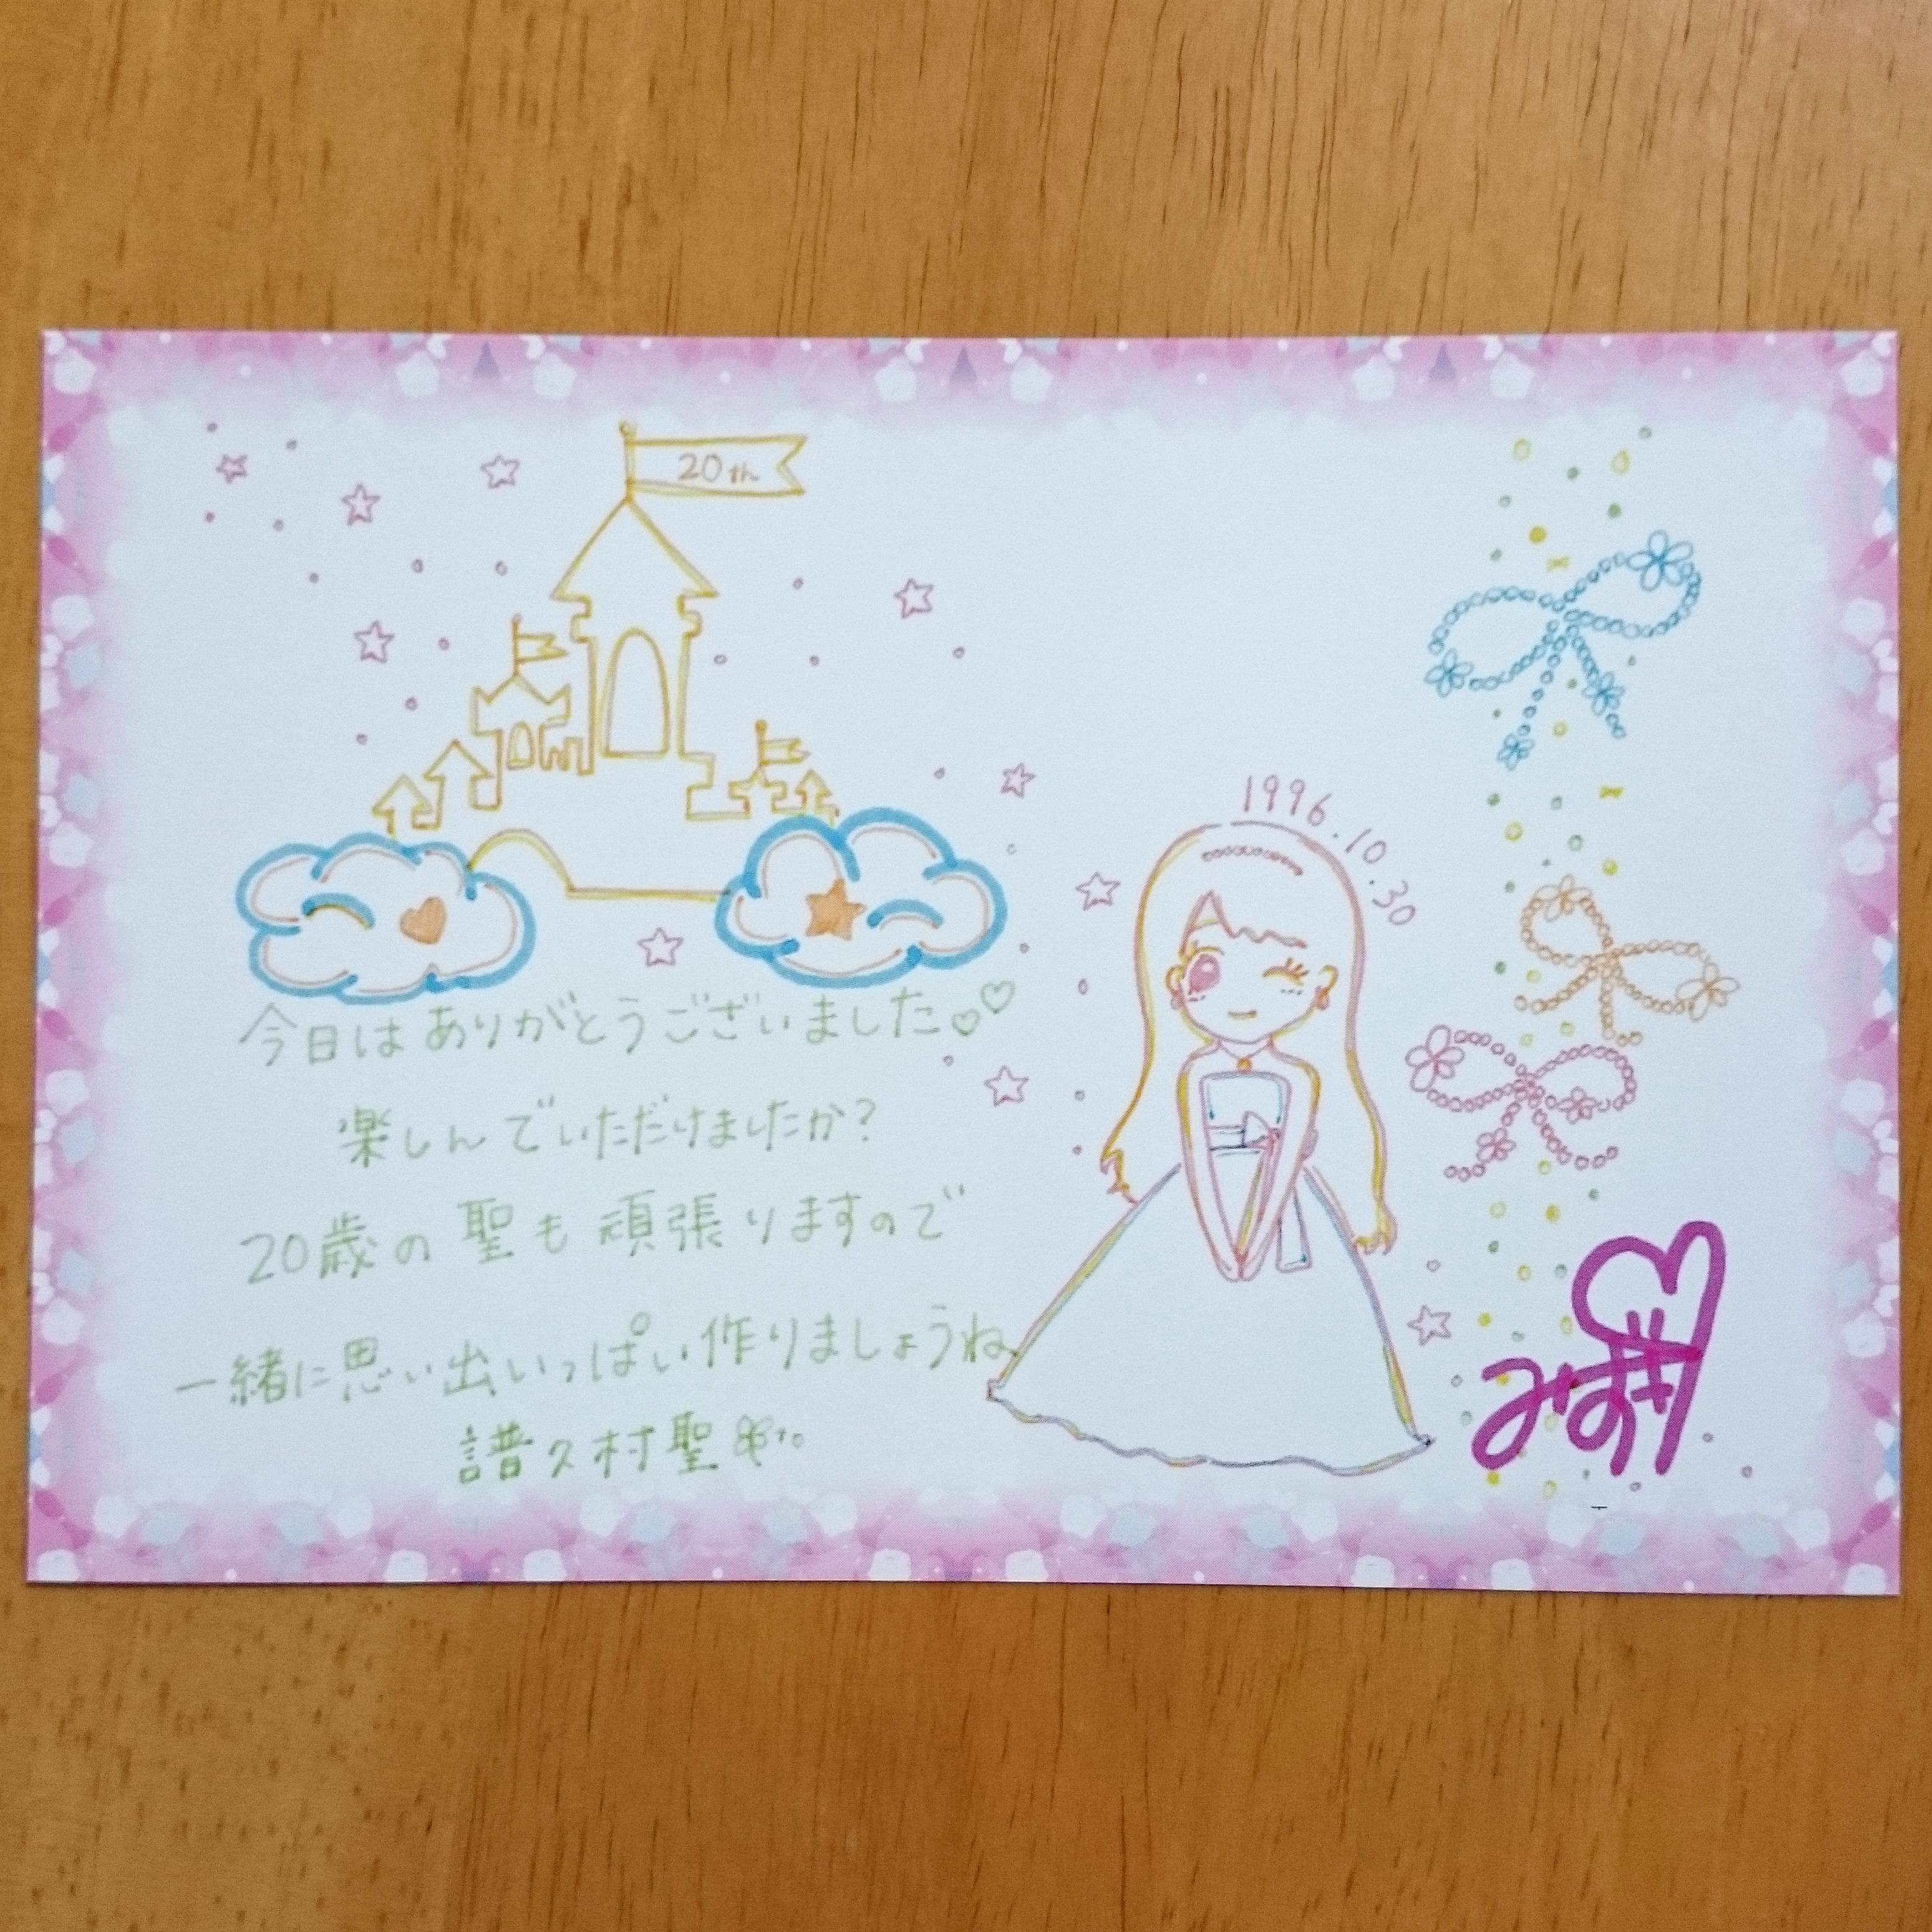 20th
1996.10.30
今日はありがとうございました♡♡
楽しんでいただけましたか?
20歳の聖も頑張りますので
一緒に思い出いっぱい作りましょうね
譜久村聖
みずき